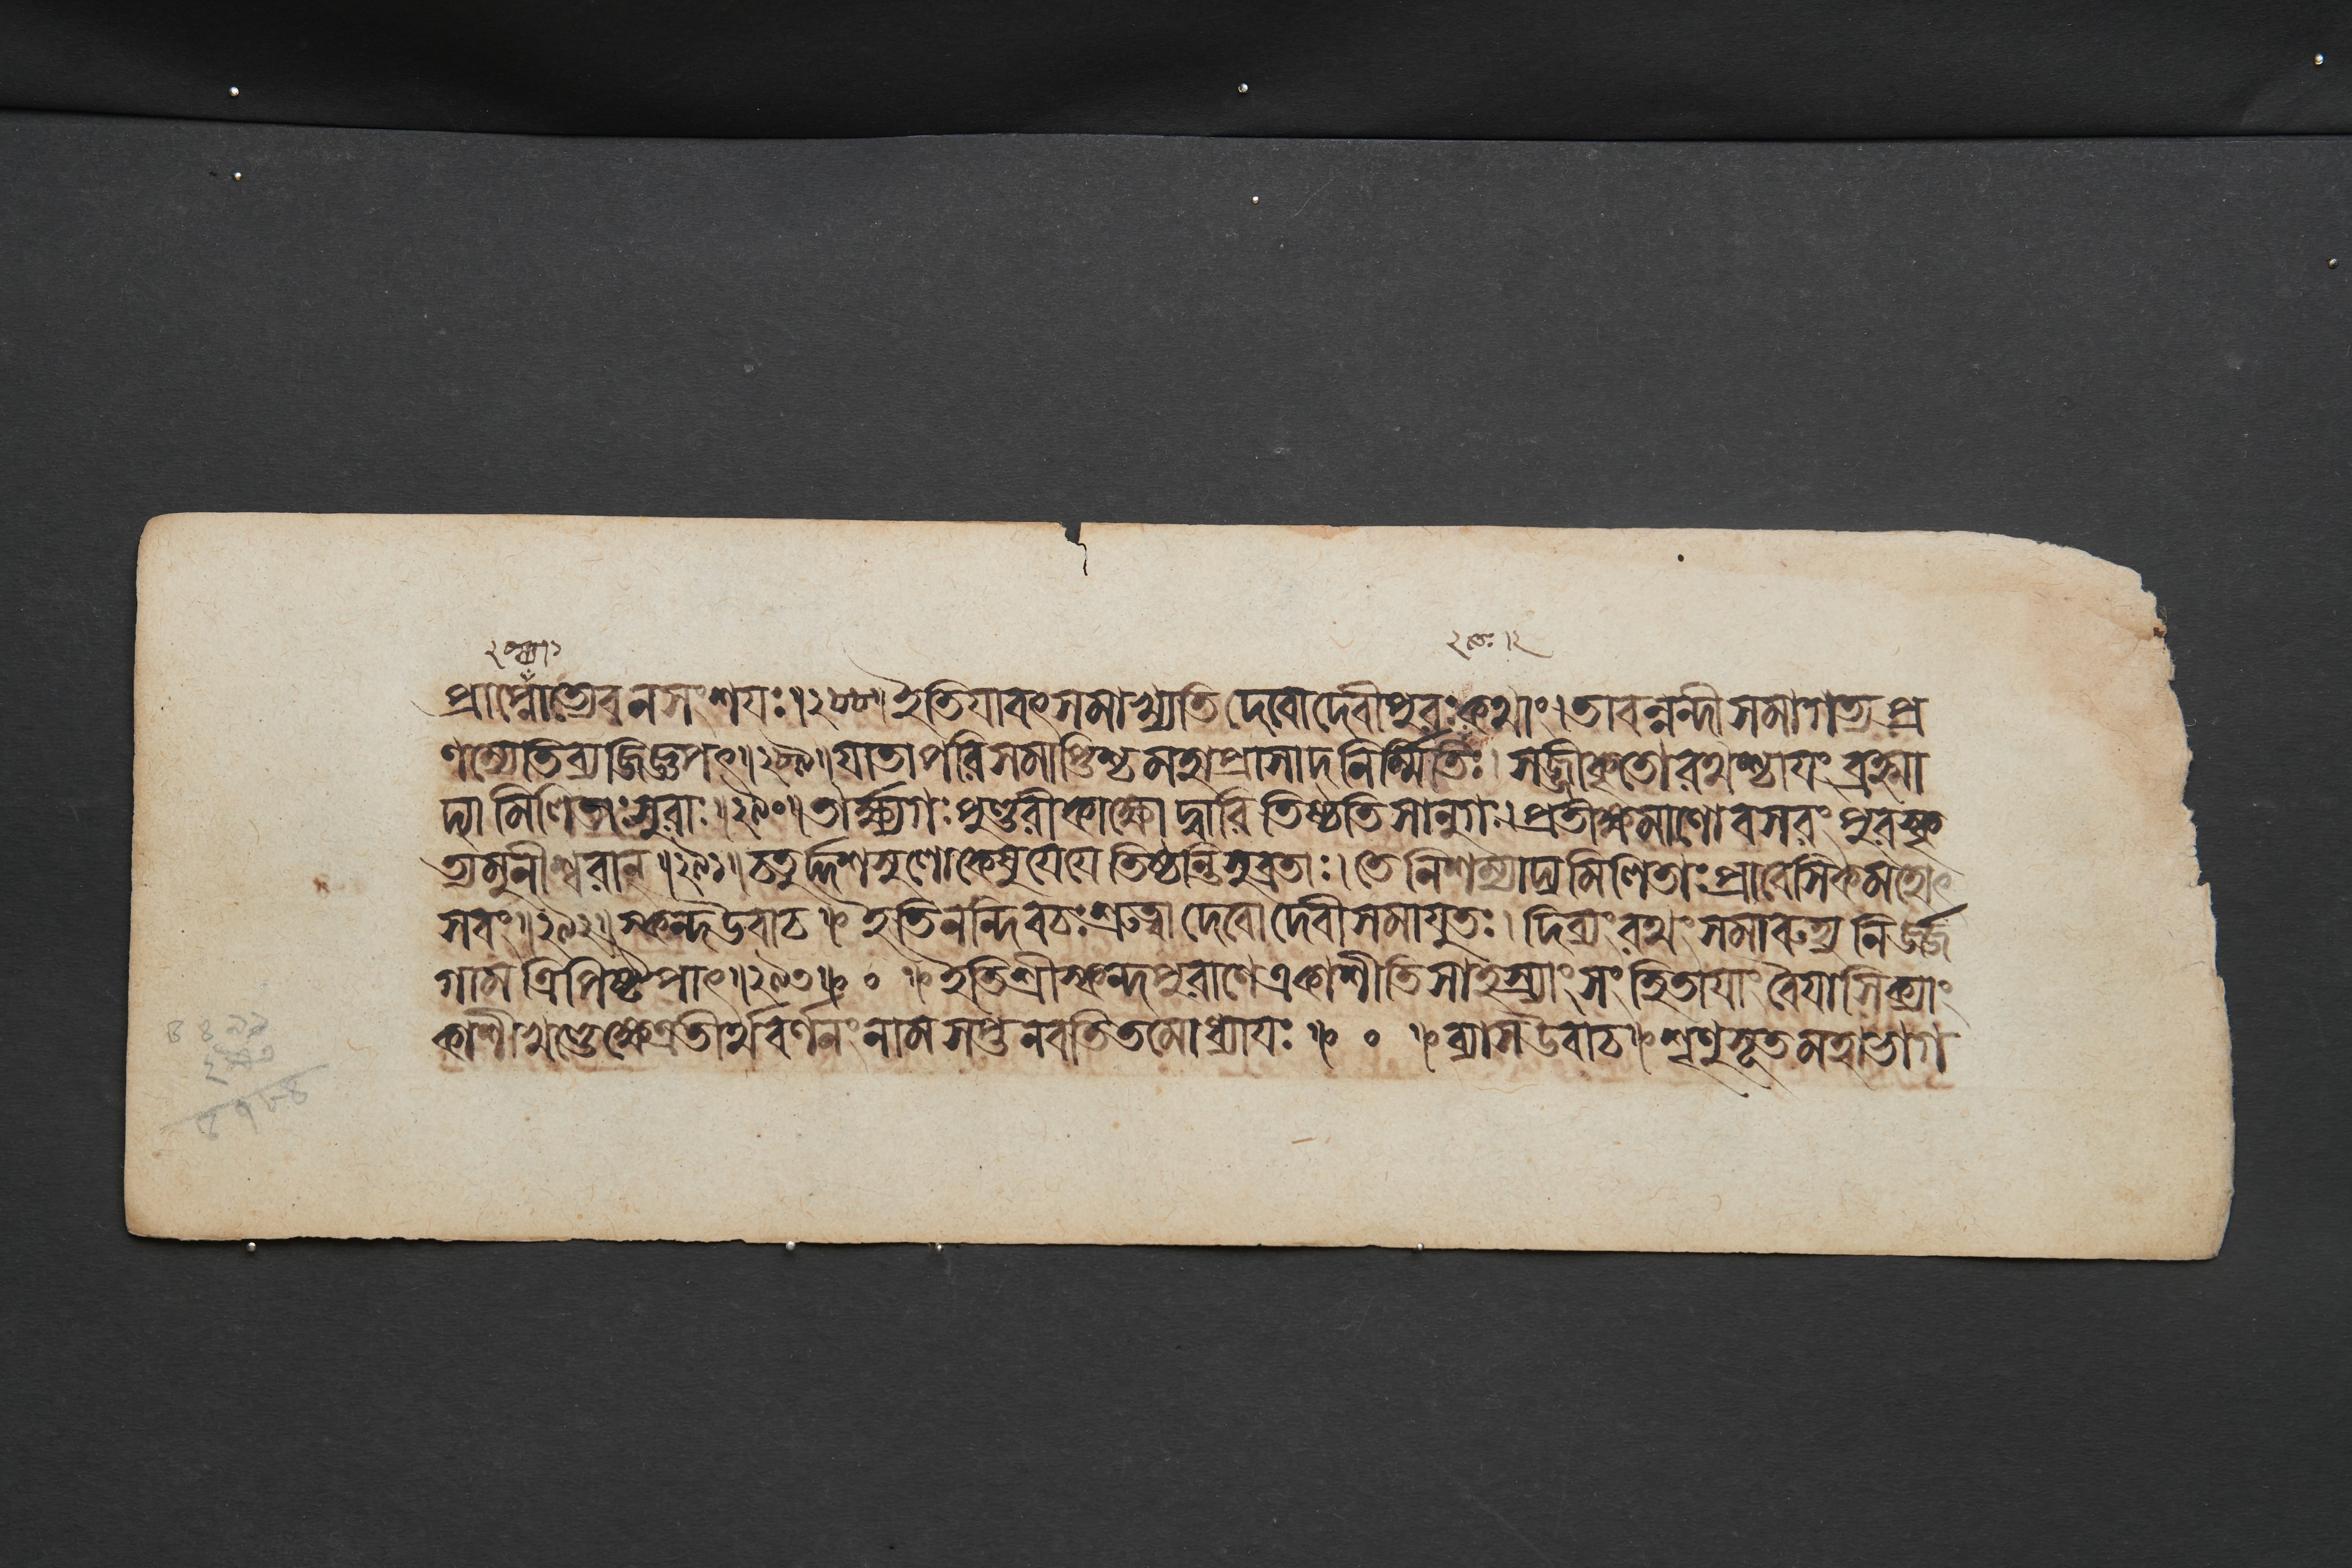 প্রাপ্নোত্যেবনসংশযঃ॥২৮৮॥ইতিযাবৎসমাখ্যাতিদেবোদেবীপুরঃকথাং।তাবন্নন্দীসমাগত্যপ্র
ণম্যেতিব্যজিজ্ঞপৎ॥২৮৯॥যাতাপরিসমাপ্তিশ্চমহাপ্রাসাদনির্ম্মিতিঃ।সজ্জীকৃতোরথশ্চাযংব্রহ্মা
দ্যামিলিতাঃসুরাঃ॥২৯০॥তার্ক্ষ্যগঃপুণ্ডরীকাক্ষোদ্বারিতিষ্ঠতিসানুগঃ।প্রতীক্ষমাণোবসরংপুরস্কৃ
ত্যমুনীশ্বরান্॥২৯১॥চতুর্দ্দশসুলোকেষুযেযেতিষ্ঠন্তিসুব্রতাঃ।তেনিশম্যাদ্যমিলিতাঃপ্রাবেসিকমহোৎ
সবং॥২৯২॥স্কন্দউবাচ॥ইতিনন্দিবচঃশ্রুত্বাদেবোদেবীসমাযুতঃ।দিব্যংরথংসমারুহ্যনির্জ্জ
গামত্রিপিষ্টপাৎ॥২৯৩॥॰॥ইতিশ্রীস্কন্দপুরাণেএকাশীতিসাহস্র্যাংসংহিতাযাংবৈযাসিক্যাং
কাশীখণ্ডেক্ষেত্রতীর্থবর্ণনংনামসপ্তনবতিতমোধ্যাযঃ॥॰॥ব্যাসউবাচ॥শৃণুসূতমহাভাগ